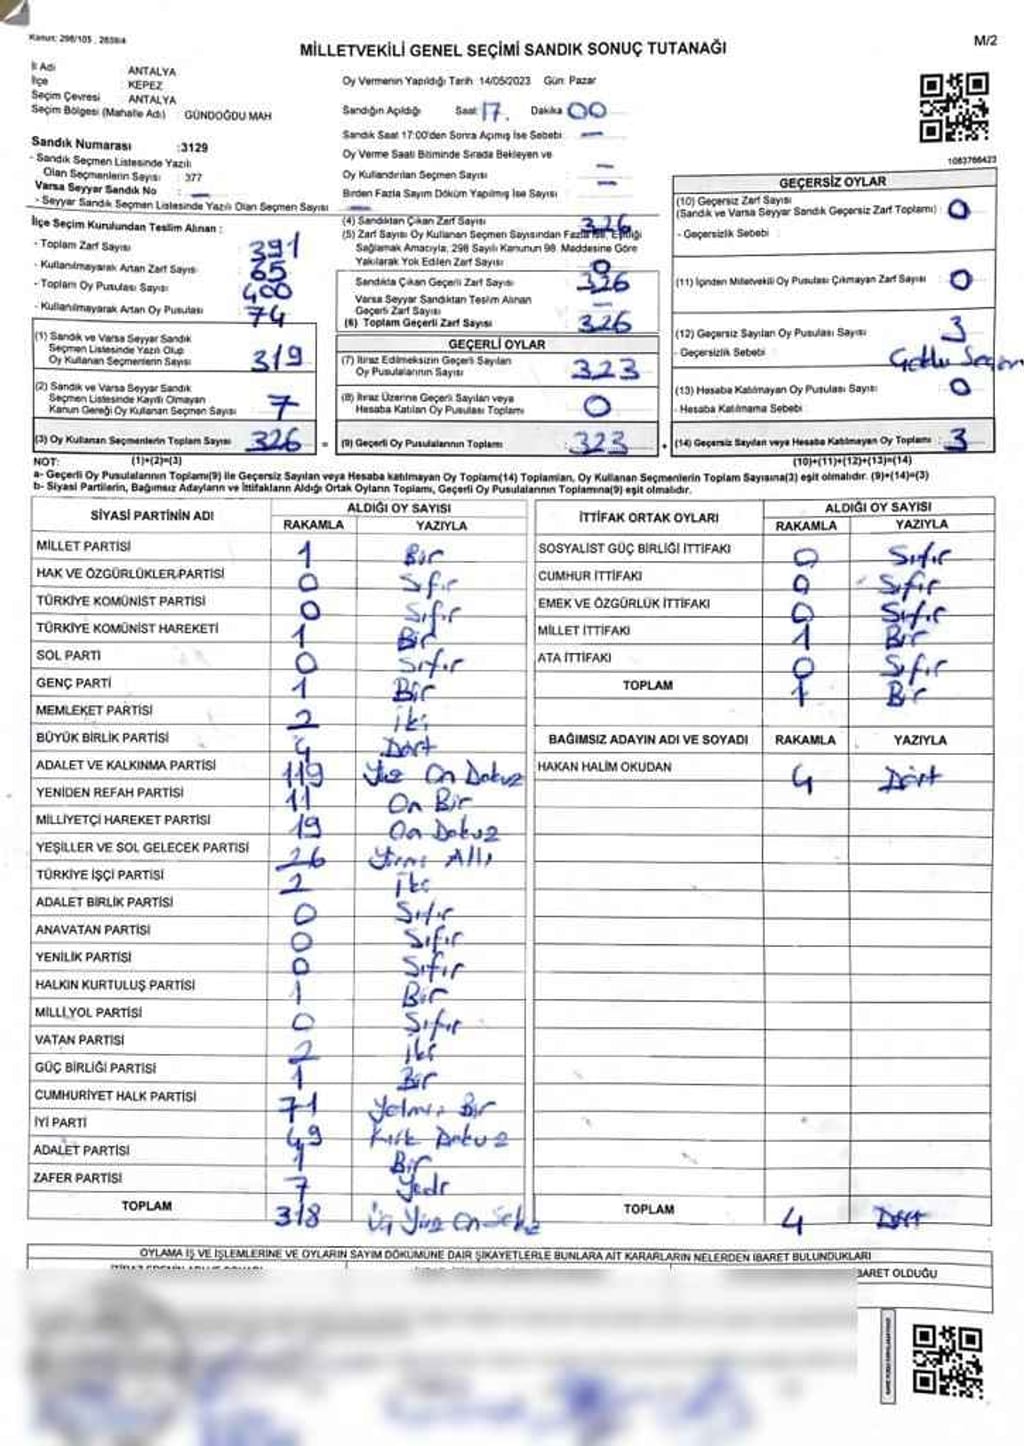 Kanun: 298/105 , 2839/4
MİLLETVEKİLİ GENEL SEÇİMİ SANDIK SONUÇ TUTANAĞI
M/2
İl Adı : ANTALYA
İlçe : KEPEZ
Seçim Çevresi : ANTALYA
Seçim Bölgesi (Mahalle Adı) : GÜNDOĞDU MAH
Sandık Numarası :3129
- Sandık Seçmen Listesinde Yazılı
Olan Seçmenlerin Sayısı : 377
Varsa Seyyar Sandık No : —
- Seyyar Sandık Seçmen Listesinde Yazılı Olan Seçmen Sayısı : —
Oy Vermenin Yapıldığı Tarih :14/05/2023 Gün: Pazar
Sandığın Açıldığı Saat: 17. Dakika: 00
Sandık Saat 17:00'den Sonra Açılmış İse Sebebi: —
Oy Verme Saati Bitiminde Sırada Bekleyen ve
Oy Kullandırılan Seçmen Sayısı : —
Birden Fazla Sayım Döküm Yapılmış İse Sayısı : —
1083766423
İlçe Seçim Kurulundan Teslim Alınan :
- Toplam Zarf Sayısı : 391
- Kullanılmayarak Artan Zarf Sayısı : 65
- Toplam Oy Pusulası Sayısı : 400
- Kullanılmayarak Artan Oy Pusulası : 74
(1) Sandık ve Varsa Seyyar Sandık
Seçmen Listesinde Yazılı Olup
Oy Kullanan Seçmenlerin Sayısı : 319
(2) Sandık ve Varsa Seyyar Sandık
Seçmen Listesinde Kayıtlı Olmayan
Kanun Gereği Oy Kullanan Seçmen Sayısı : 7
(3) Oy Kullanan Seçmenlerin Toplam Sayısı : 326
(4) Sandıktan Çıkan Zarf Sayısı : 326
(5) Zarf Sayısı Oy Kullanan Seçmen Sayısından Fazla İse, Eşitliği
Sağlamak Amacıyla, 298 Sayılı Kanunun 98. Maddesine Göre
Yakılarak Yok Edilen Zarf Sayısı : 0
Sandıkta Çıkan Geçerli Zarf Sayısı : 326
Varsa Seyyar Sandıktan Teslim Alınan
Geçerli Zarf Sayısı : —
(6) Toplam Geçerli Zarf Sayısı : 326
GEÇERLİ OYLAR
(7) İtiraz Edilmeksizin Geçerli Sayılan
Oy Pusulalarının Sayısı : 323
(8) İtiraz Üzerine Geçerli Sayılan veya
Hesaba Katılan Oy Pusulası Toplamı : 0
= (9) Geçerli Oy Pusulalarının Toplamı : 323
GEÇERSİZ OYLAR
(10) Geçersiz Zarf Sayısı
(Sandık ve Varsa Seyyar Sandık Geçersiz Zarf Toplamı) : 0
- Geçersizlik Sebebi :
(11) İçinden Milletvekili Oy Pusulası Çıkmayan Zarf Sayısı : 0
(12) Geçersiz Sayılan Oy Pusulası Sayısı : 3
- Geçersizlik Sebebi :
(13) Hesaba Katılmayan Oy Pusulası Sayısı : 0
- Hesaba Katılmama Sebebi :
+ (14) Geçersiz Sayılan veya Hesaba Katılmayan Oy Toplamı : 3
NOT: (1)+(2)=(3)
(10)+(11)+(12)+(13)=(14)
a- Geçerli Oy Pusulalarının Toplamı(9) ile Geçersiz Sayılan veya Hesaba katılmayan Oy Toplamı(14) Toplamları, Oy Kullanan Seçmenlerin Toplam Sayısına(3) eşit olmalıdır. (9)+(14)=(3)
b- Siyasi Partilerin, Bağımsız Adayların ve İttifakların Aldığı Ortak Oyların Toplamı, Geçerli Oy Pusulalarının Toplamına(9) eşit olmalıdır.
SİYASİ PARTİNİN ADI
ALDIĞI OY SAYISI
RAKAMLA YAZIYLA
MİLLET PARTİSİ 1 Bir
HAK VE ÖZGÜRLÜKLER PARTİSİ 0 Sıfır
TÜRKİYE KOMÜNİST PARTİSİ 0 Sıfır
TÜRKİYE KOMÜNİST HAREKETİ 1 Bir
SOL PARTİ 0 Sıfır
GENÇ PARTİ 1 Bir
MEMLEKET PARTİSİ 2 İki
BÜYÜK BİRLİK PARTİSİ 4 Dört
ADALET VE KALKINMA PARTİSİ 119 Yüz On Dokuz
YENİDEN REFAH PARTİSİ 11 On Bir
MİLLİYETÇİ HAREKET PARTİSİ 19 On Dokuz
YEŞİLLER VE SOL GELECEK PARTİSİ 26 Yirmi Altı
TÜRKİYE İŞÇİ PARTİSİ 2 İki
ADALET BİRLİK PARTİSİ 0 Sıfır
ANAVATAN PARTİSİ 0 Sıfır
YENİLİK PARTİSİ 0 Sıfır
HALKIN KURTULUŞ PARTİSİ 1 Bir
MİLLİ YOL PARTİSİ 0 Sıfır
VATAN PARTİSİ 2 İki
GÜÇ BİRLİĞİ PARTİSİ 1 Bir
CUMHURİYET HALK PARTİSİ 71 Yetmiş Bir
İYİ PARTİ 49 Kırk Dokuz
ADALET PARTİSİ 1 Bir
ZAFER PARTİSİ 7 Yedi
TOPLAM 318 Üç Yüz On Sekiz
İTTİFAK ORTAK OYLARI
ALDIĞI OY SAYISI
RAKAMLA YAZIYLA
SOSYALİST GÜÇ BİRLİĞİ İTTİFAKI 0 Sıfır
CUMHUR İTTİFAKI 0 Sıfır
EMEK VE ÖZGÜRLÜK İTTİFAKI 0 Sıfır
MİLLET İTTİFAKI 1 Bir
ATA İTTİFAKI 0 Sıfır
TOPLAM 1 Bir
BAĞIMSIZ ADAYIN ADI VE SOYADI RAKAMLA YAZIYLA
HAKAN HALİM OKUDAN 4 Dört
TOPLAM 4 Dört
OYLAMA İŞ VE İŞLEMLERİNE VE OYLARIN SAYIM DÖKÜMÜNE DAİR ŞİKAYETLERLE BUNLARA AİT KARARLARIN NELERDEN İBARET BULUNDUKLARI
BARET OLDUĞU